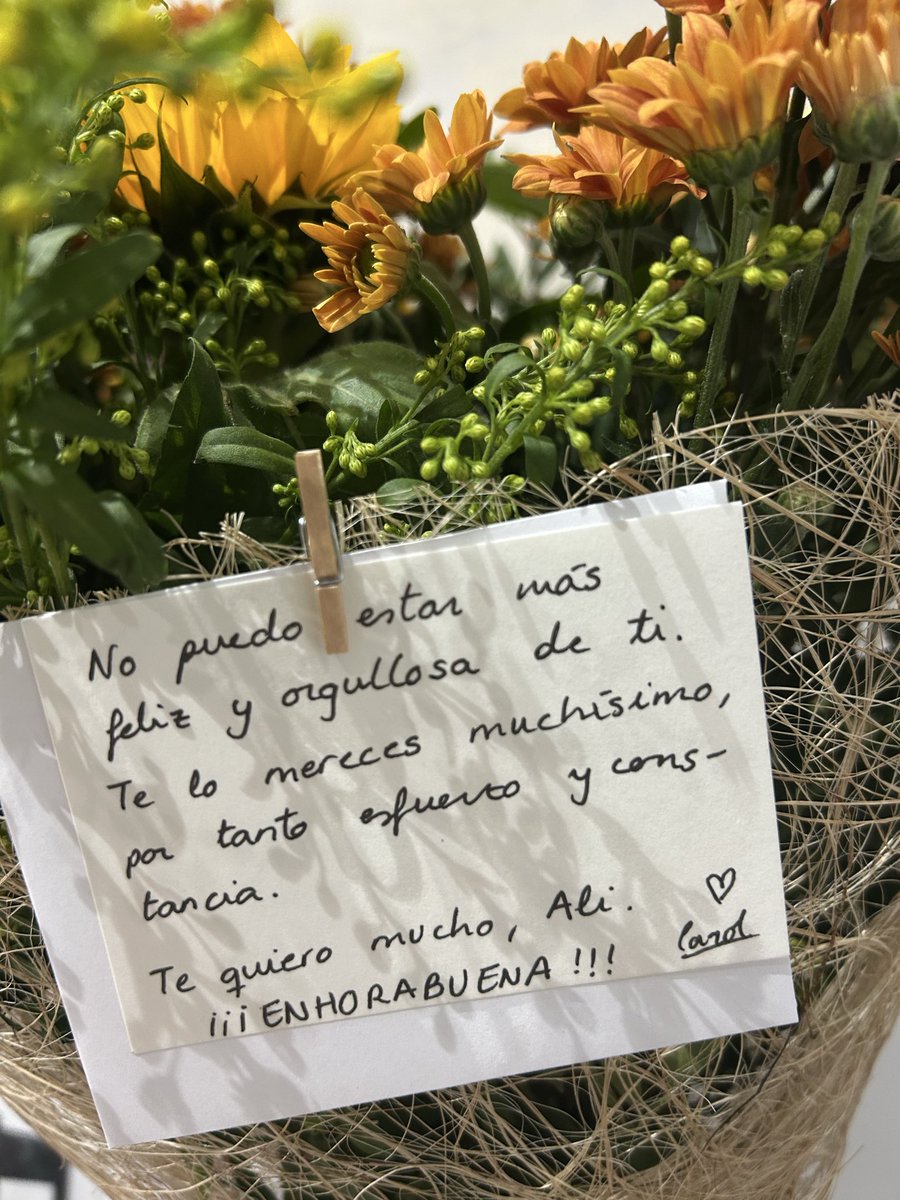 No puedo estar más
feliz y orgullosa de ti.
Te lo mereces muchísimo,
por tanto esfuerzo y cons-
tancia.
Te quiero mucho, Ali. ♡
¡¡¡ENHORABUENA!!! Carol